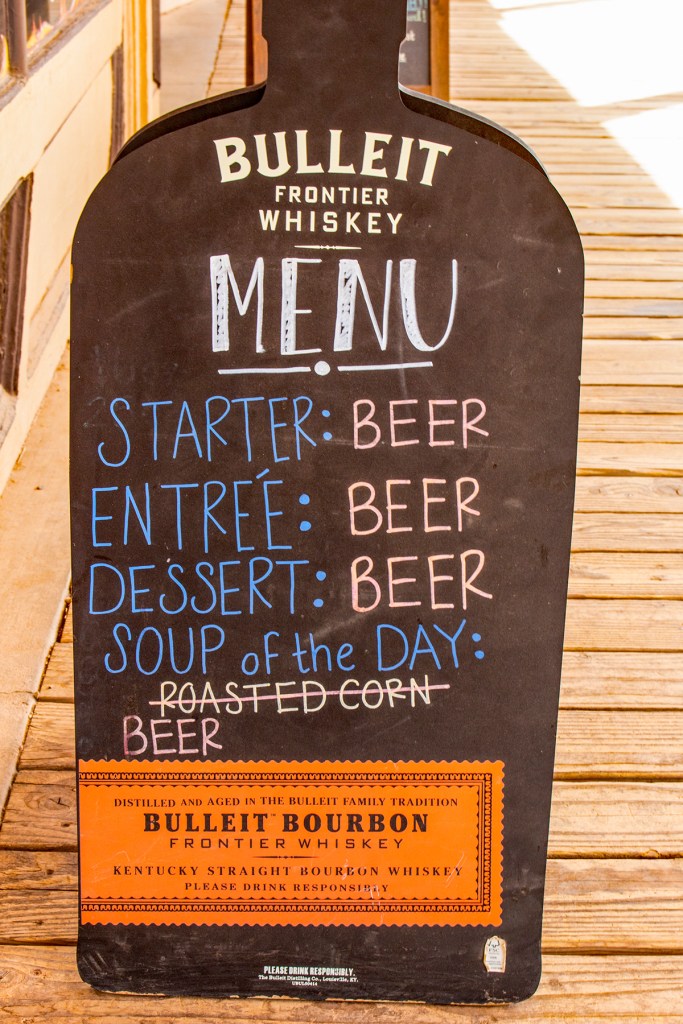 BULLEIT
FRONTIER
WHISKEY
MENU
STARTER: BEER
ENTREÉ: BEER
DESSERT: BEER
SOUP of the DAY:
ROASTED CORN
BEER
DISTILLED AND AGED IN THE BULLEIT FAMILY TRADITION
BULLEIT™ BOURBON
FRONTIER WHISKEY
KENTUCKY STRAIGHT BOURBON WHISKEY
PLEASE DRINK RESPONSIBLY
PLEASE DRINK RESPONSIBLY.
The Bulleit Distilling Co., Louisville, KY.